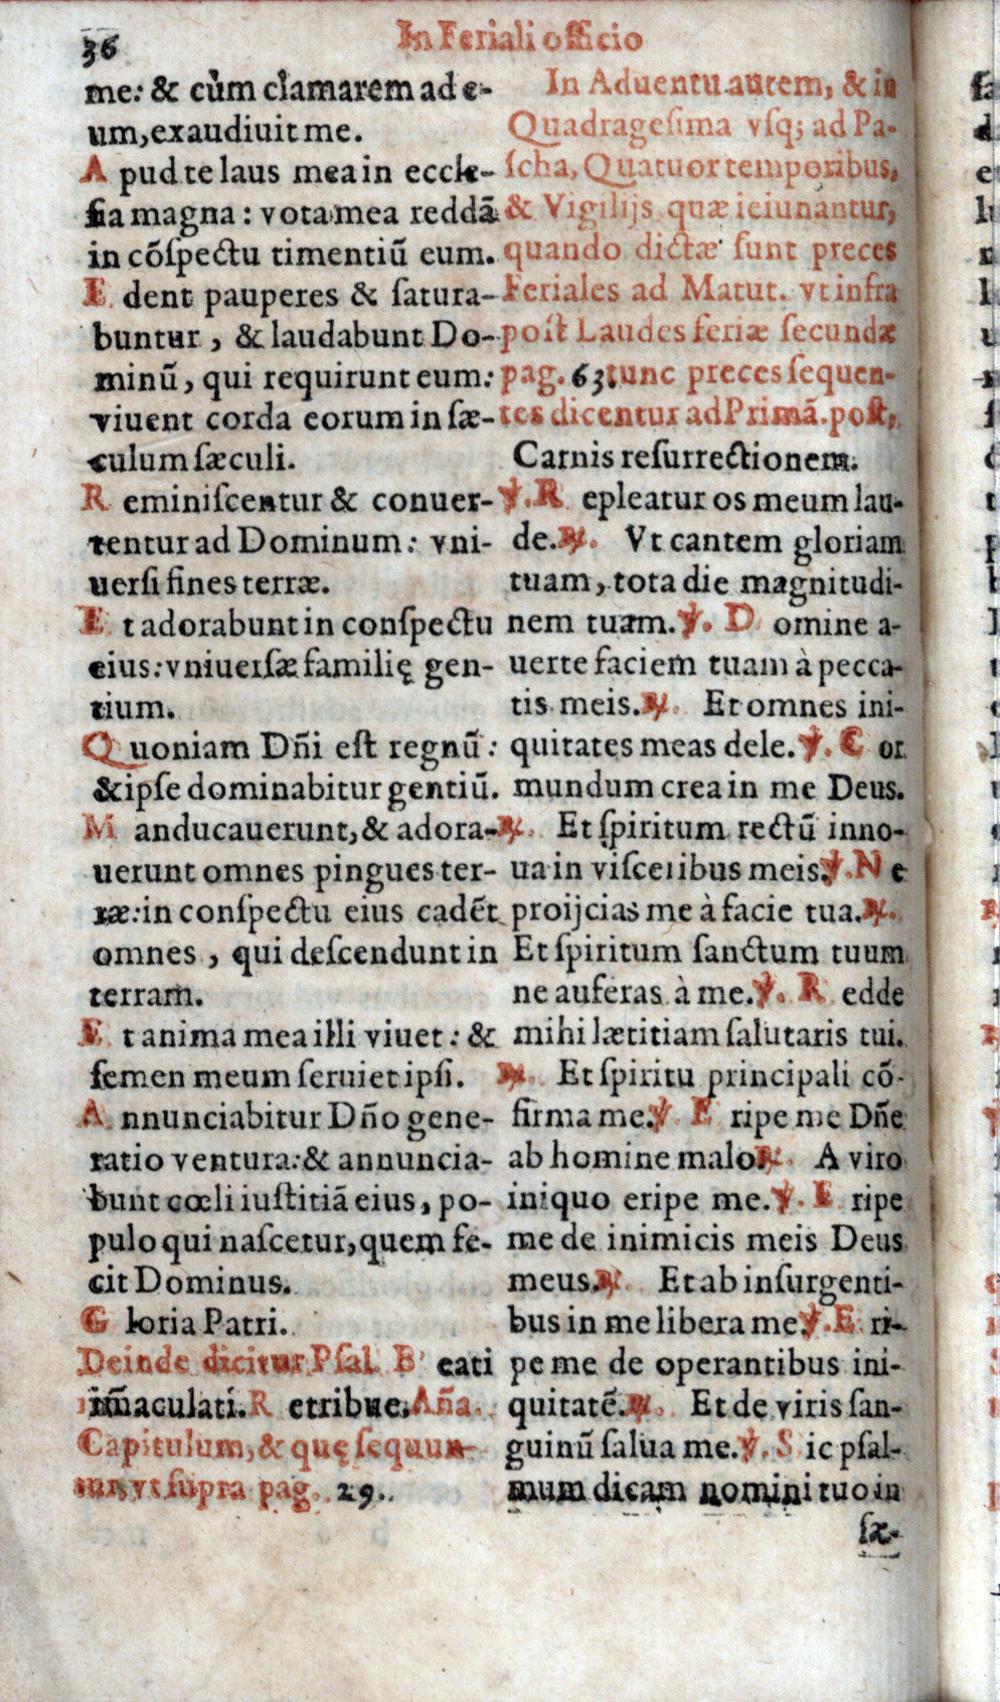 36
In Feriali officio
me: & cùm clamarem ad e-
um, exaudiuit me.
A pud te laus mea in eccle-
sia magna: vota mea reddā
in cōſpectu timentiū eum.
E dent pauperes & ſatura-
buntur, & laudabunt Do-
minū, qui requirunt eum:
viuent corda eorum in ſæ-
culum ſæculi.
R eminiſcentur & conuer-
tentur ad Dominum: vni-
uerſi fines terræ.
E t adorabunt in conſpectu
eius: vniuerſæ familię gen-
tium.
Q uoniam Dñi eſt regnū:
& ipſe dominabitur gentiū.
M anducauerunt, & adora-
uerunt omnes pingues ter-
ræ: in conſpectu eius cadēt
omnes, qui deſcendunt in
terram.
E t anima mea illi viuet: &
ſemen meum ſeruiet ipſi.
A nnunciabitur Dño gene-
ratio ventura: & annuncia-
bunt cœli iuſtitiā eius, po-
pulo qui naſcetur, quem fe-
cit Dominus.
G loria Patri.
Deinde dicitur Pſal. B eati
im̄aculati. R etribue. Aña.
Capitulum, & quę ſequun-
tur, vt ſupra pag. 29.
In Aduentu autem, & in
Quadrageſima vſq; ad Pa-
ſcha, Quatuor temporibus,
& Vigilijs quæ ieiunantur,
quando dictæ ſunt preces
Feriales ad Matut. vt infra
poſt Laudes feriæ ſecundæ
pag. 63. tunc preces ſequen-
tes dicentur ad Primā. poſt,
Carnis reſurrectionem.
℣. R epleatur os meum lau-
de. ℟. Vt cantem gloriam
tuam, tota die magnitudi-
nem tuam. ℣. D omine a-
uerte faciem tuam à pecca-
tis meis. ℟. Et omnes ini-
quitates meas dele. ℣. C or
mundum crea in me Deus.
℟. Et ſpiritum rectū inno-
ua in viſceribus meis. ℣. N e
proijcias me à facie tua. ℟.
Et ſpiritum ſanctum tuum
ne auferas à me. ℣. R edde
mihi lætitiam ſalutaris tui.
℟. Et ſpiritu principali cō-
firma me. ℣. E ripe me Dñe
ab homine malo ℟. A viro
iniquo eripe me. ℣. E ripe
me de inimicis meis Deus
meus. ℟. Et ab inſurgenti-
bus in me libera me. ℣. E ri-
pe me de operantibus ini-
quitatē. ℟. Et de viris ſan-
guinū ſalua me. ℣. S ic pſal-
mum dicam nomini tuo in
ſæ-